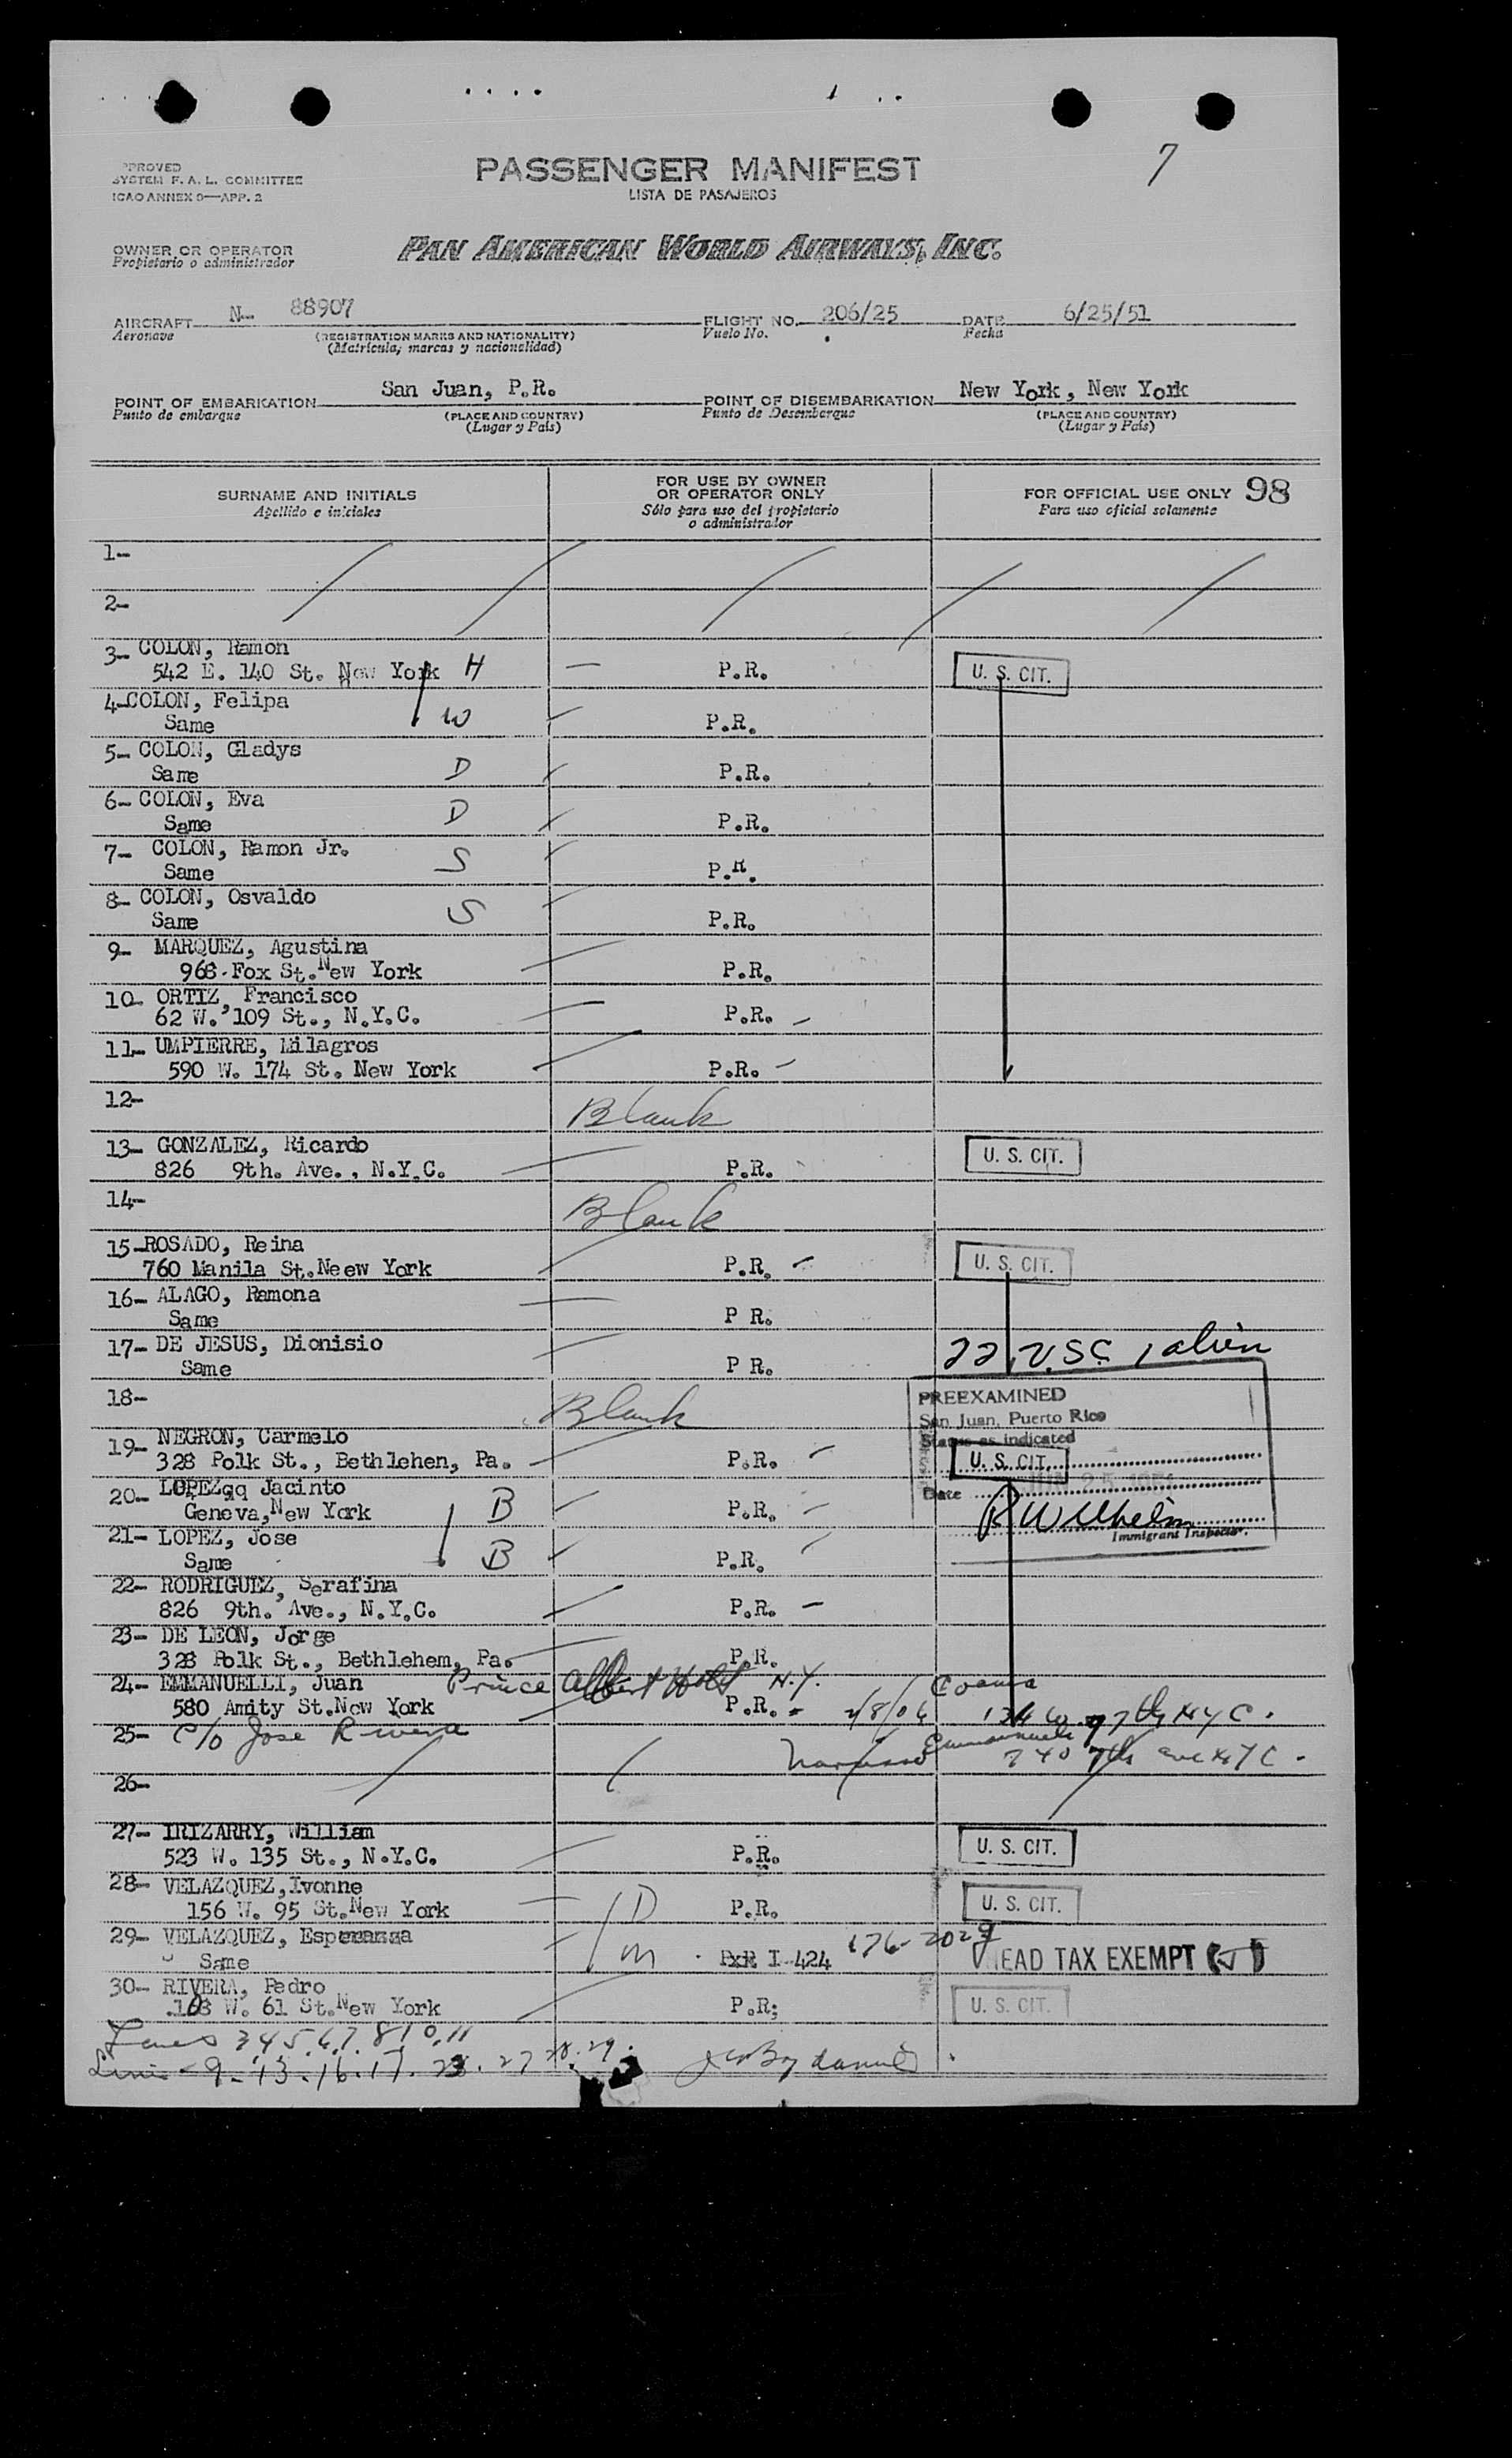 7
PPROVED
SYSTEM F. A. L. COMMITTEE
ICAO ANNEX 9—APP. 2
PASSENGER MANIFEST
LISTA DE PASAJEROS
OWNER OR OPERATOR
Propietario o administrador
PAN AMERICAN WORLD AIRWAYS, INC.
AIRCRAFT N- 88907 FLIGHT NO. 206/25 DATE 6/25/51
Aeronave (REGISTRATION MARKS AND NATIONALITY) Vuelo No. Fecha
(Matrícula, marcas y nacionalidad)
POINT OF EMBARKATION San Juan, P.R. POINT OF DISEMBARKATION New York, New York
Punto de embarque (PLACE AND COUNTRY) Punto de Desembarque (PLACE AND COUNTRY)
(Lugar y País) (Lugar y País)
SURNAME AND INITIALS FOR USE BY OWNER OR OPERATOR ONLY FOR OFFICIAL USE ONLY 98
Apellido e iniciales Sólo para uso del propietario o administrador Para uso oficial solamente
1-
2-
3- COLON, Ramon
542 E. 140 St. New York H P.R. U. S. CIT.
4-COLON, Felipa
Same W P.R.
5- COLON, Gladys
Same D P.R.
6- COLON, Eva
Same D P.R.
7- COLON, Ramon Jr.
Same S P.R.
8- COLON, Osvaldo
Same S P.R.
9- MARQUEZ, Agustina
968 Fox St. New York P.R.
10- ORTIZ, Francisco
62 W. 109 St., N.Y.C. P.R.
11- UMPIERRE, Milagros
590 W. 174 St. New York P.R.
12- Blank
13- GONZALEZ, Ricardo
826 9th. Ave., N.Y.C. P.R. U. S. CIT.
14- Blank
15-ROSADO, Reina
760 Manila St.Neew York P.R. U. S. CIT.
16- ALAGO, Ramona
Same P R.
17- DE JESUS, Dionisio
Same P R. 22 USC 1 alien
18- Blank
PREEXAMINED
San Juan, Puerto Rico
Status as indicated
19- NEGRON, Carmelo
328 Polk St., Bethlehen, Pa. P.R. U. S. CIT.
Date JUN 25 1951
20- LOPEZqq Jacinto
Geneva, New York B P.R. R Wilhelm
Immigrant Inspector.
21- LOPEZ, Jose
Same B P.R.
22- RODRIGUEZ, Serafina
826 9th. Ave., N.Y.C. P.R.
23- DE LEON, Jorge
328 Polk St., Bethlehem, Pa. P.R.
24- EMMANUELLI, Juan Prince Albert Hotel N.Y. Coamo
580 Amity St.New York P.R. 2/8/06 97th NYC.
25- c/o Jose Rivera Emmanuelli 740 7th ave NYC.
26-
27- IRIZARRY, William
523 W. 135 St., N.Y.C. P.R. U. S. CIT.
28- VELAZQUEZ,Ivonne
156 W. 95 St. New York D P.R. U. S. CIT.
29- VELAZQUEZ, Esperanza
Same M I-424 176-2029 HEAD TAX EXEMPT
30- RIVERA, Pedro
108 W. 61 St. New York P.R; U. S. CIT.
Lines 3.4.5.6.7.8.10.11
Lines 9-13.16.17.23.27 28.29.